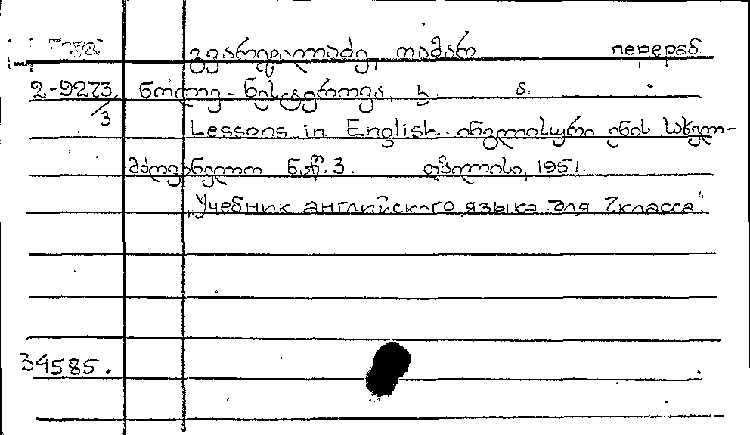 გვარჯალაძე, თამარ перераб.
2-9273/3 ნოლდე-ნესტეროვა, ა.
Lessons in English. ინგლისური ენის სახელ-
მძღვანელო ნაწ. 3. თბილისი, 1951.
„Учебник английского языка для 7 класса"
34585.